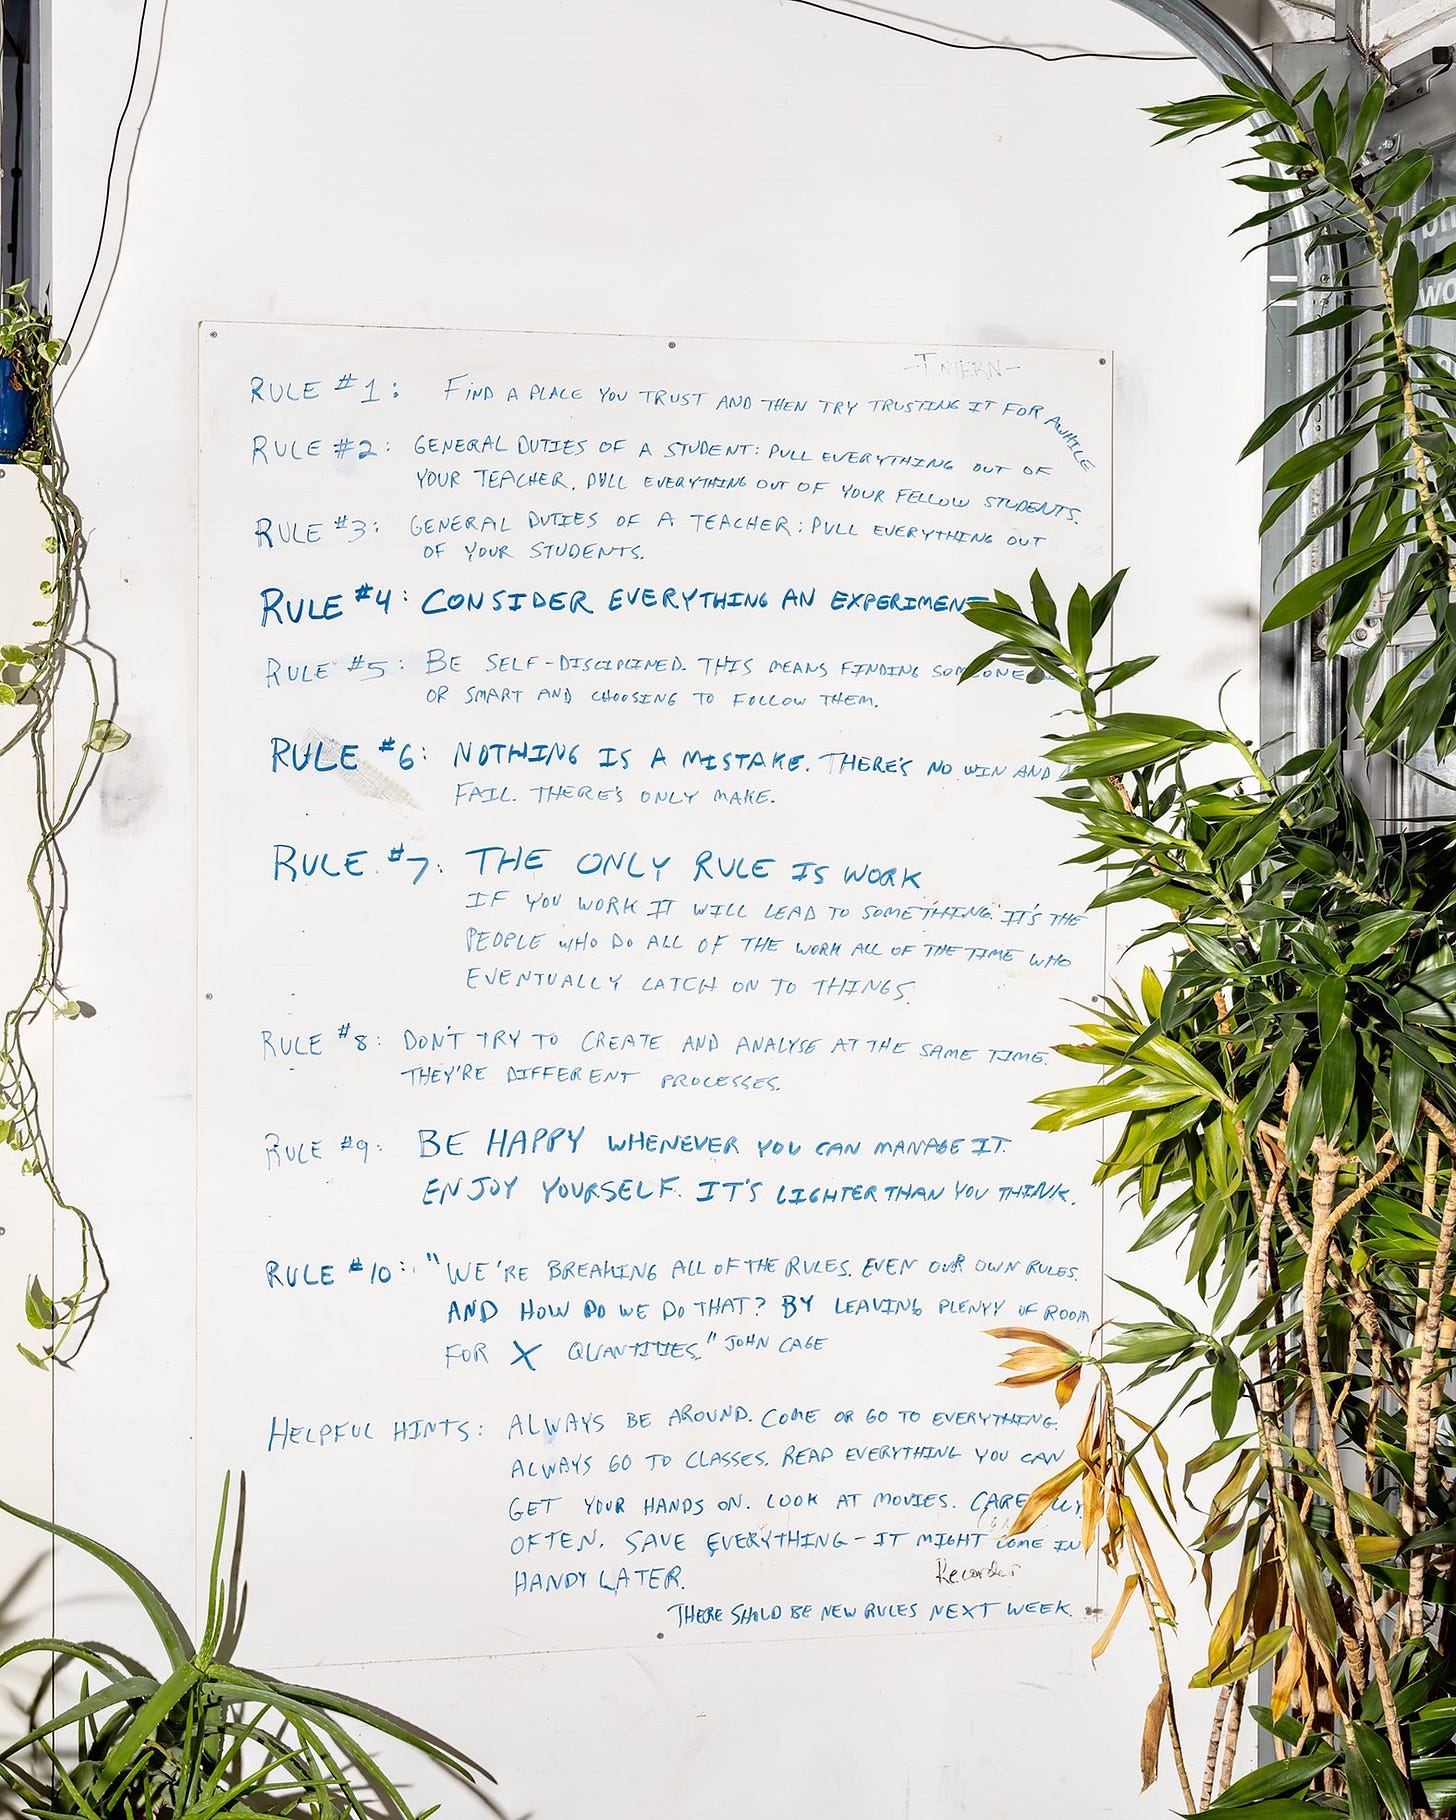 -INTERN-
RULE #1: FIND A PLACE YOU TRUST AND THEN TRY TRUSTING IT FOR AWHILE
RULE #2: GENERAL DUTIES OF A STUDENT: PULL EVERYTHING OUT OF
YOUR TEACHER. PULL EVERYTHING OUT OF YOUR FELLOW STUDENTS.
RULE #3: GENERAL DUTIES OF A TEACHER: PULL EVERYTHING OUT
OF YOUR STUDENTS.
RULE #4: CONSIDER EVERYTHING AN EXPERIMENT
RULE #5: BE SELF-DISCIPLINED. THIS MEANS FINDING SOMEONE
OR SMART AND CHOOSING TO FOLLOW THEM.
RULE #6: NOTHING IS A MISTAKE. THERE'S NO WIN AND
FAIL. THERE'S ONLY MAKE.
RULE #7: THE ONLY RULE IS WORK
IF YOU WORK IT WILL LEAD TO SOMETHING. IT'S THE
PEOPLE WHO DO ALL OF THE WORK ALL OF THE TIME WHO
EVENTUALLY CATCH ON TO THINGS.
RULE #8: DON'T TRY TO CREATE AND ANALYSE AT THE SAME TIME.
THEY'RE DIFFERENT PROCESSES.
RULE #9: BE HAPPY WHENEVER YOU CAN MANAGE IT.
ENJOY YOURSELF. IT'S LIGHTER THAN YOU THINK.
RULE #10: "WE'RE BREAKING ALL OF THE RULES. EVEN OUR OWN RULES.
AND HOW DO WE DO THAT? BY LEAVING PLENTY OF ROOM
FOR X QUANTITIES." JOHN CAGE
HELPFUL HINTS: ALWAYS BE AROUND. COME OR GO TO EVERYTHING.
ALWAYS GO TO CLASSES. READ EVERYTHING YOU CAN
GET YOUR HANDS ON. LOOK AT MOVIES. CAREFULLY
OFTEN. SAVE EVERYTHING - IT MIGHT COME IN
HANDY LATER.
Recorder
THERE SHOLD BE NEW RULES NEXT WEEK.